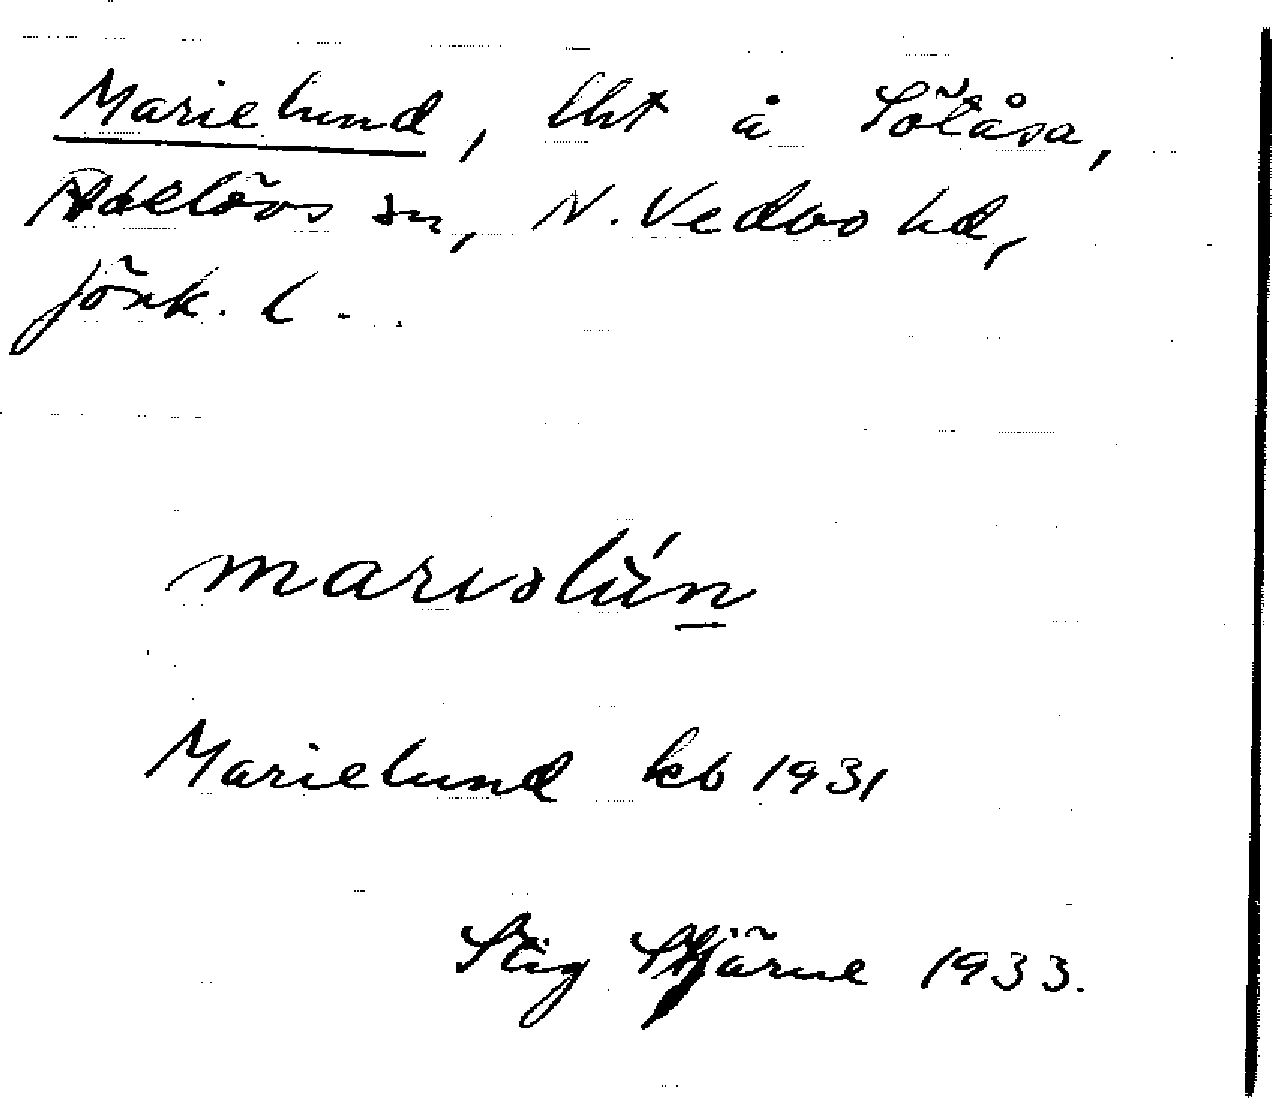 Marielund, lht å Sötåsa,
Adelövs sn, N. Vedbo hd,
Jönk. l.
marıəlún
Marielund kb 1931
Stig Stjärne 1933.